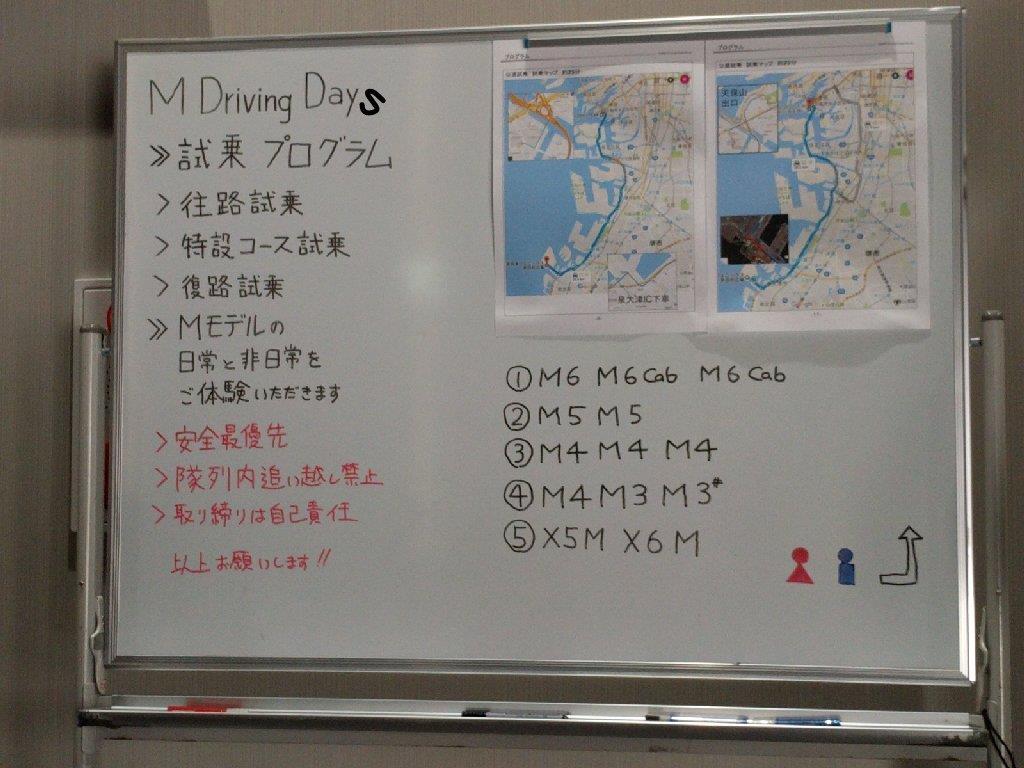 M Driving Days
≫ 試乗 プログラム
> 往路試乗
> 特設コース試乗
> 復路試乗
≫ Mモデルの
日常と非日常を
ご体験いただきます
> 安全最優先
> 隊列内追い越し禁止
> 取り締りは自己責任
以上お願いします!!
プログラム
公道試乗 試乗マップ
堺市
泉大津IC下車
プログラム
公道試乗 試乗マップ
天保山
出口
堺市
① M6 M6 Cab M6 Cab
② M5 M5
③ M4 M4 M4
④ M4 M3 M3#
⑤ X5M X6 M